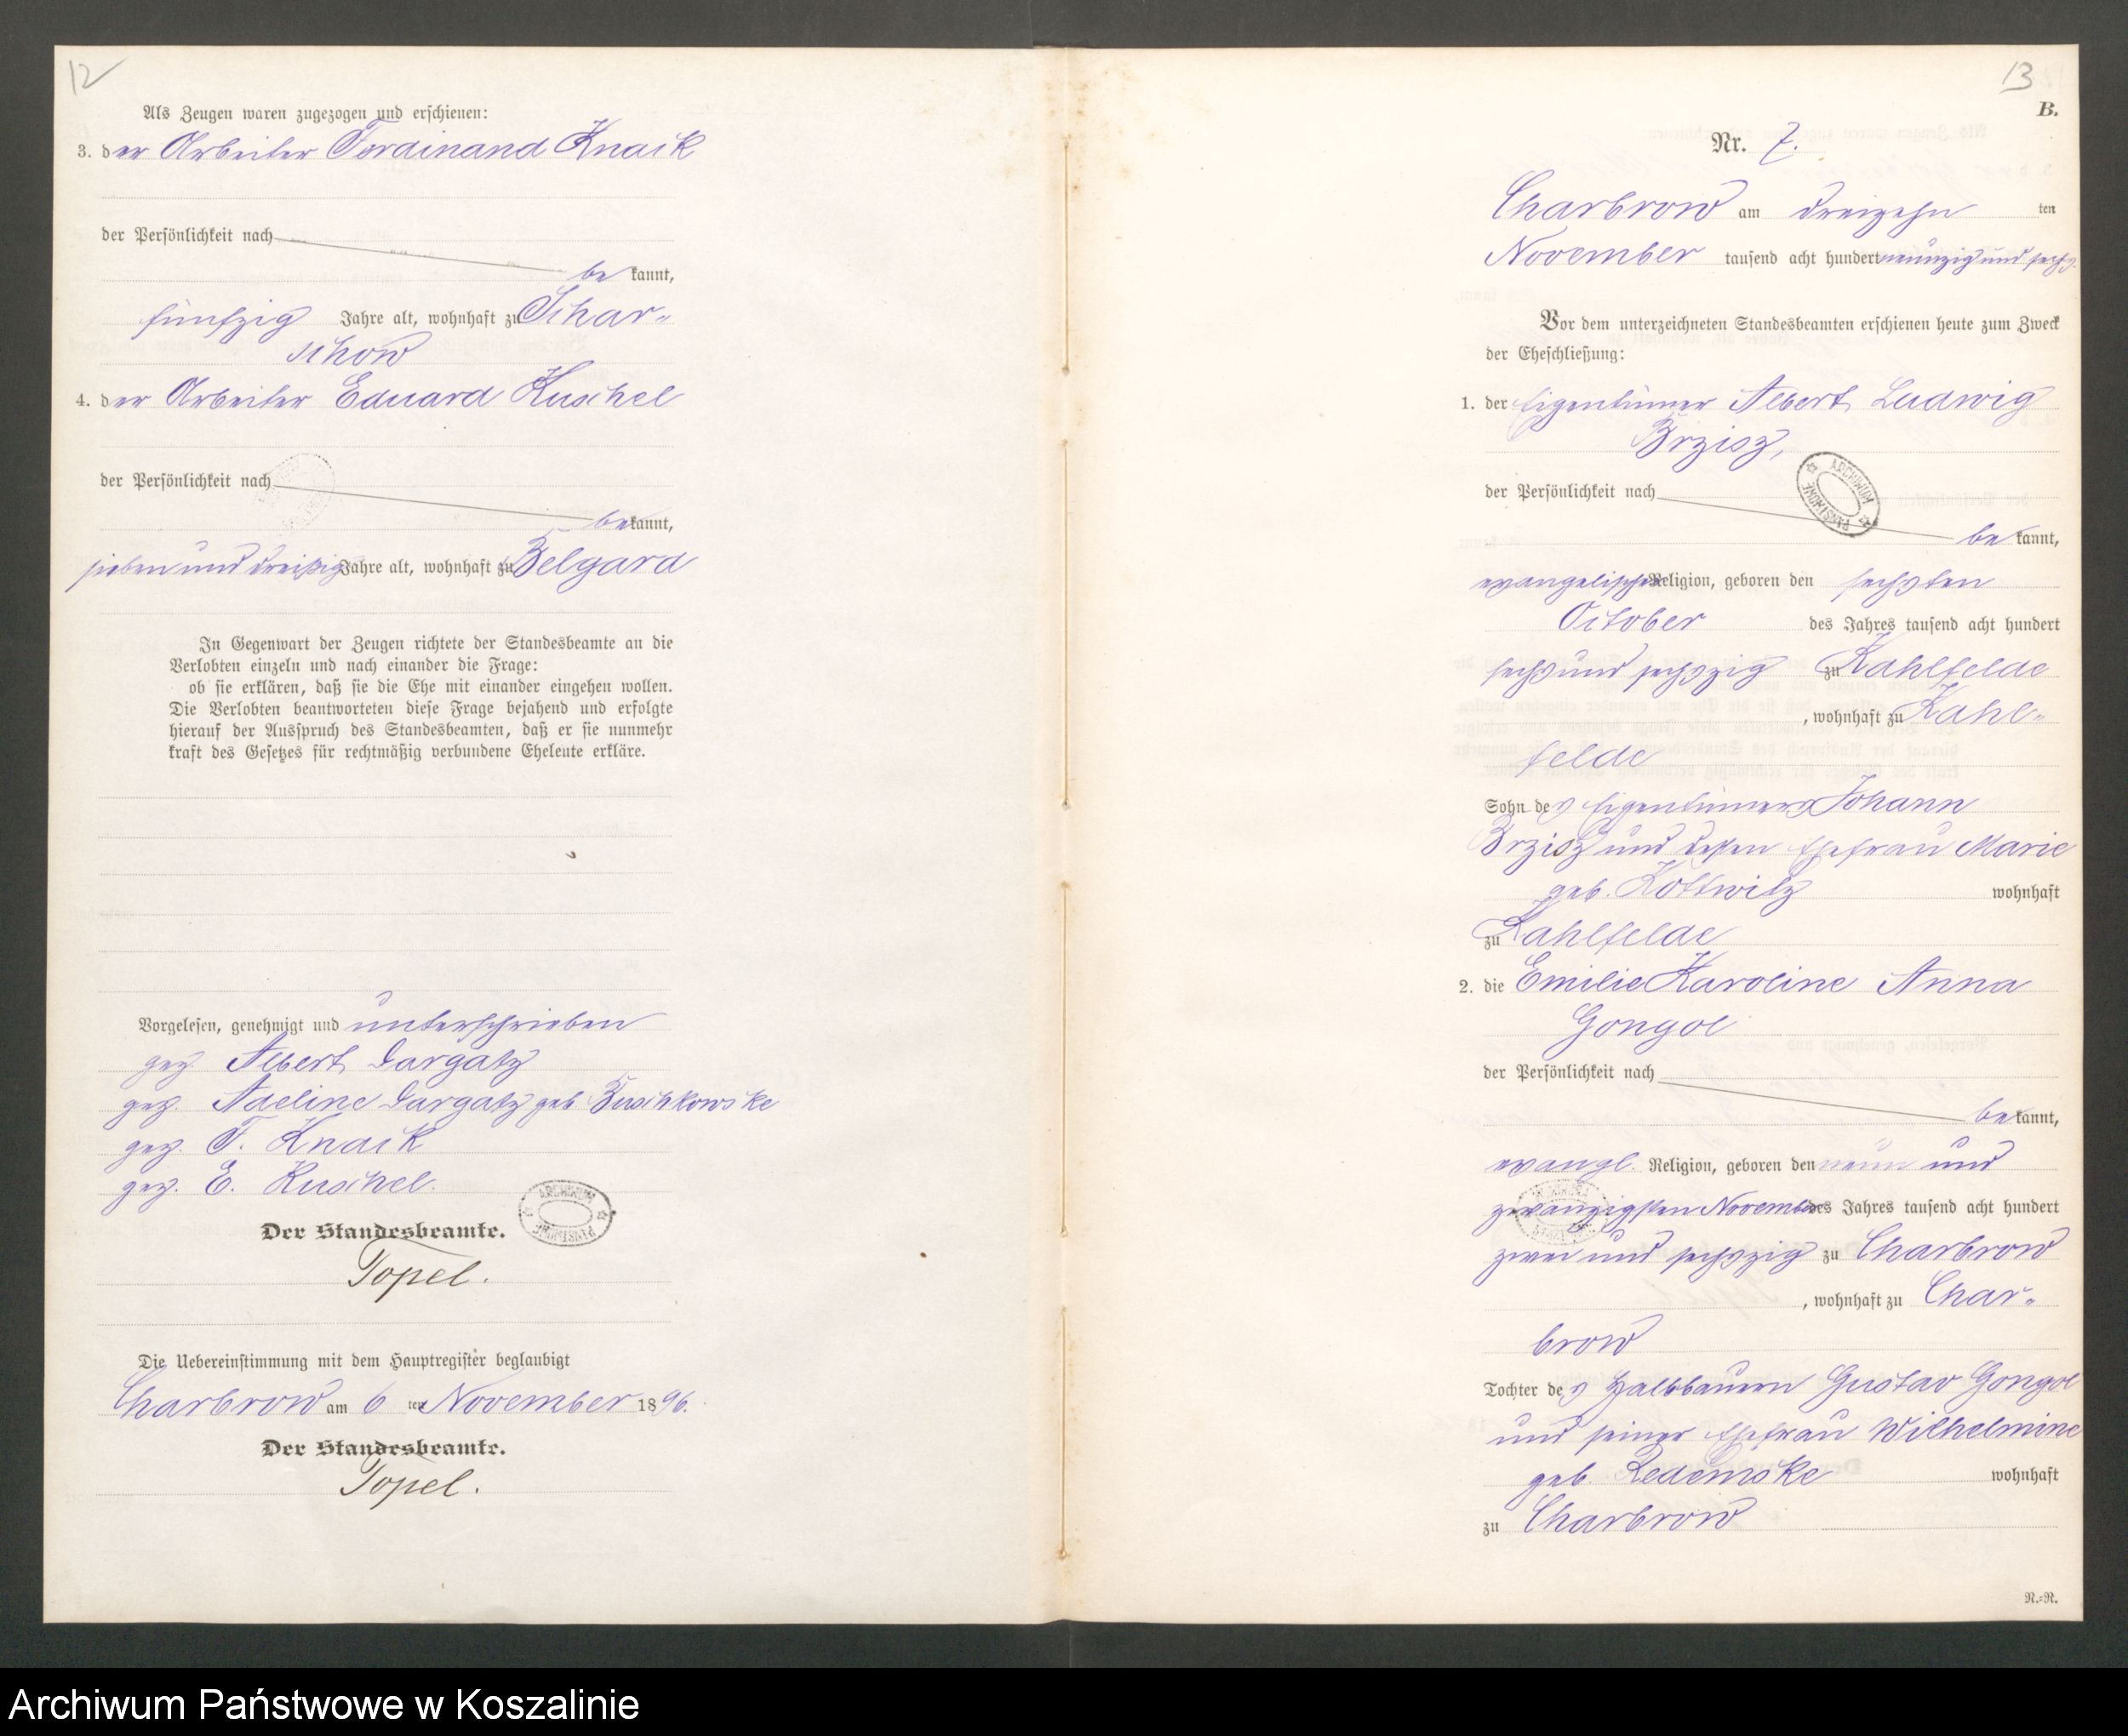 12
Als Zeugen waren zugezogen und erschienen:
3. der Arbeiter Ferdinand Knaik
der Persönlichkeit nach
bekannt,
fünfzig Jahre alt, wohnhaft zu Schar-
schow
4. der Arbeiter Eduard Kuschel
der Persönlichkeit nach
bekannt,
sieben und dreißig Jahre alt, wohnhaft zu Belgard
In Gegenwart der Zeugen richtete der Standesbeamte an die
Verlobten einzeln und nach einander die Frage:
ob sie erklären, daß sie die Ehe mit einander eingehen wollen.
Die Verlobten beantworteten diese Frage bejahend und erfolgte
hierauf der Ausspruch des Standesbeamten, daß er sie nunmehr
kraft des Gesetzes für rechtmäßig verbundene Eheleute erkläre.
Vorgelesen, genehmigt und unterschrieben
gez. Albert Dargatz
gez. Adeline Dargatz geb. Buschkowske
gez. F. Knaik
gez. E. Kuschel.
Der Standesbeamte.
ARCHIWUM PAŃSTWOWE
Topel.
Die Uebereinstimmung mit dem Hauptregister beglaubigt
Charbrow am 6 ten November 1896.
Der Standesbeamte.
Topel.
13
B.
Nr. 7.
Charbrow am dreizehn ten
November tausend acht hundert neunzig und sechs.
Vor dem unterzeichneten Standesbeamten erschienen heute zum Zweck
der Eheschließung:
1. der Eigentümer Albert Ludwig
Brzisz,
ARCHIWUM PAŃSTWOWE
der Persönlichkeit nach
bekannt,
evangelischer Religion, geboren den sechsten
October des Jahres tausend acht hundert
sechs und sechszig zu Kahlfelde
, wohnhaft zu Kahl-
felde
Sohn des Eigentümers Johann
Brzisz und dessen Ehefrau Marie
geb. Kottwitz wohnhaft
zu Kahlfelde
2. die Emilie Karoline Anna
Gongol
der Persönlichkeit nach
bekannt,
evangl. Religion, geboren den neun und
zwanzigsten November des Jahres tausend acht hundert
zwei und sechszig zu Charbrow
, wohnhaft zu Char-
brow
Tochter des Halbbauern Gustav Gongol
und seiner Ehefrau Wilhelmine
geb. Redemske wohnhaft
zu Charbrow
R.=R.
Archiwum Państwowe w Koszalinie